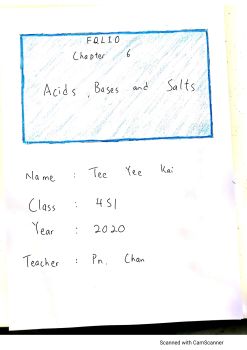 FOLIO
Chapter 6
Acids, Bases and Salts
Name : Tee Yee Kai
Class : 4S1
Year : 2020
Teacher : Pn. Chan
Scanned with CamScanner